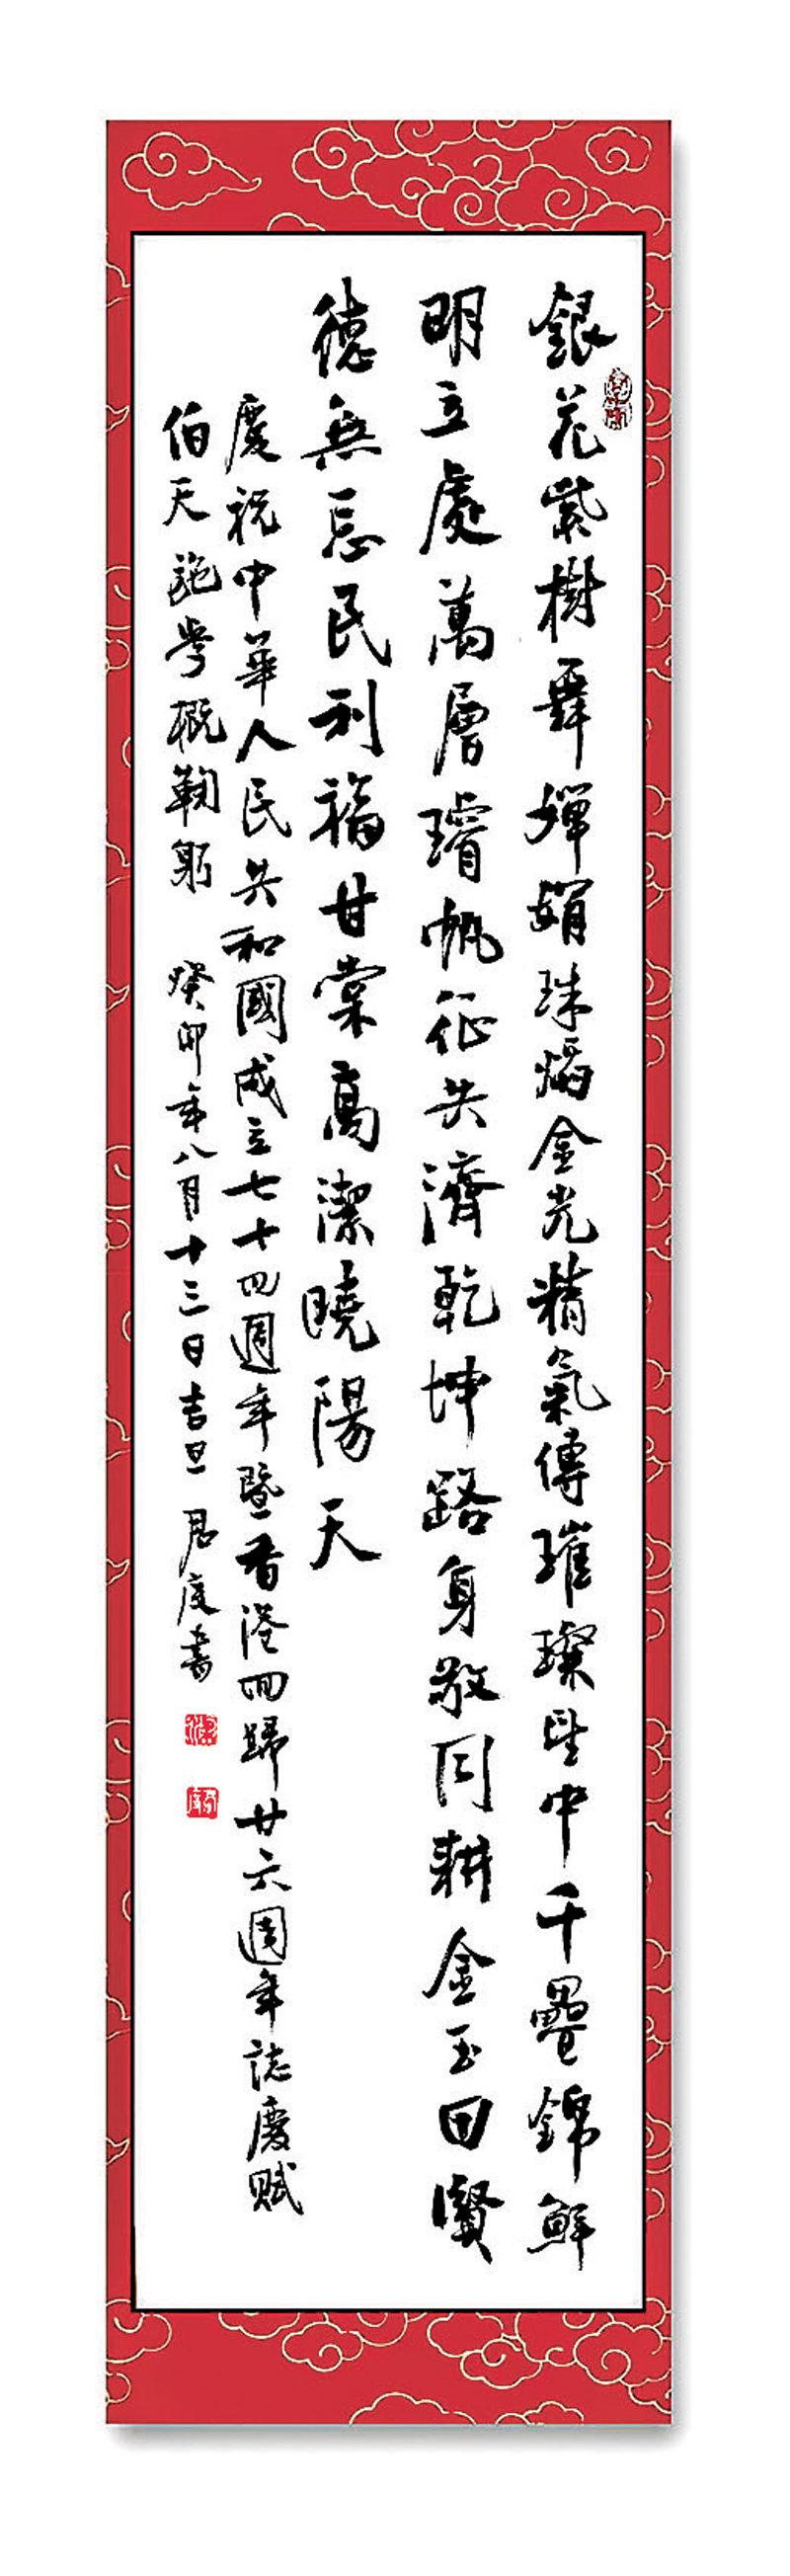 銀花紫樹舞嬋娟珠熖金光精氣傳璀璨望中千疊錦鮮
明立處萬層璿帆征共濟乾坤路身敬同耕金玉田賢
德無忘民利福甘棠高潔曉陽天
慶祝中華人民共和國成立七十四週年暨香港回歸廿六週年誌慶賦
伯天施學概鞠躬 癸卯年八月十三日吉旦 君度書